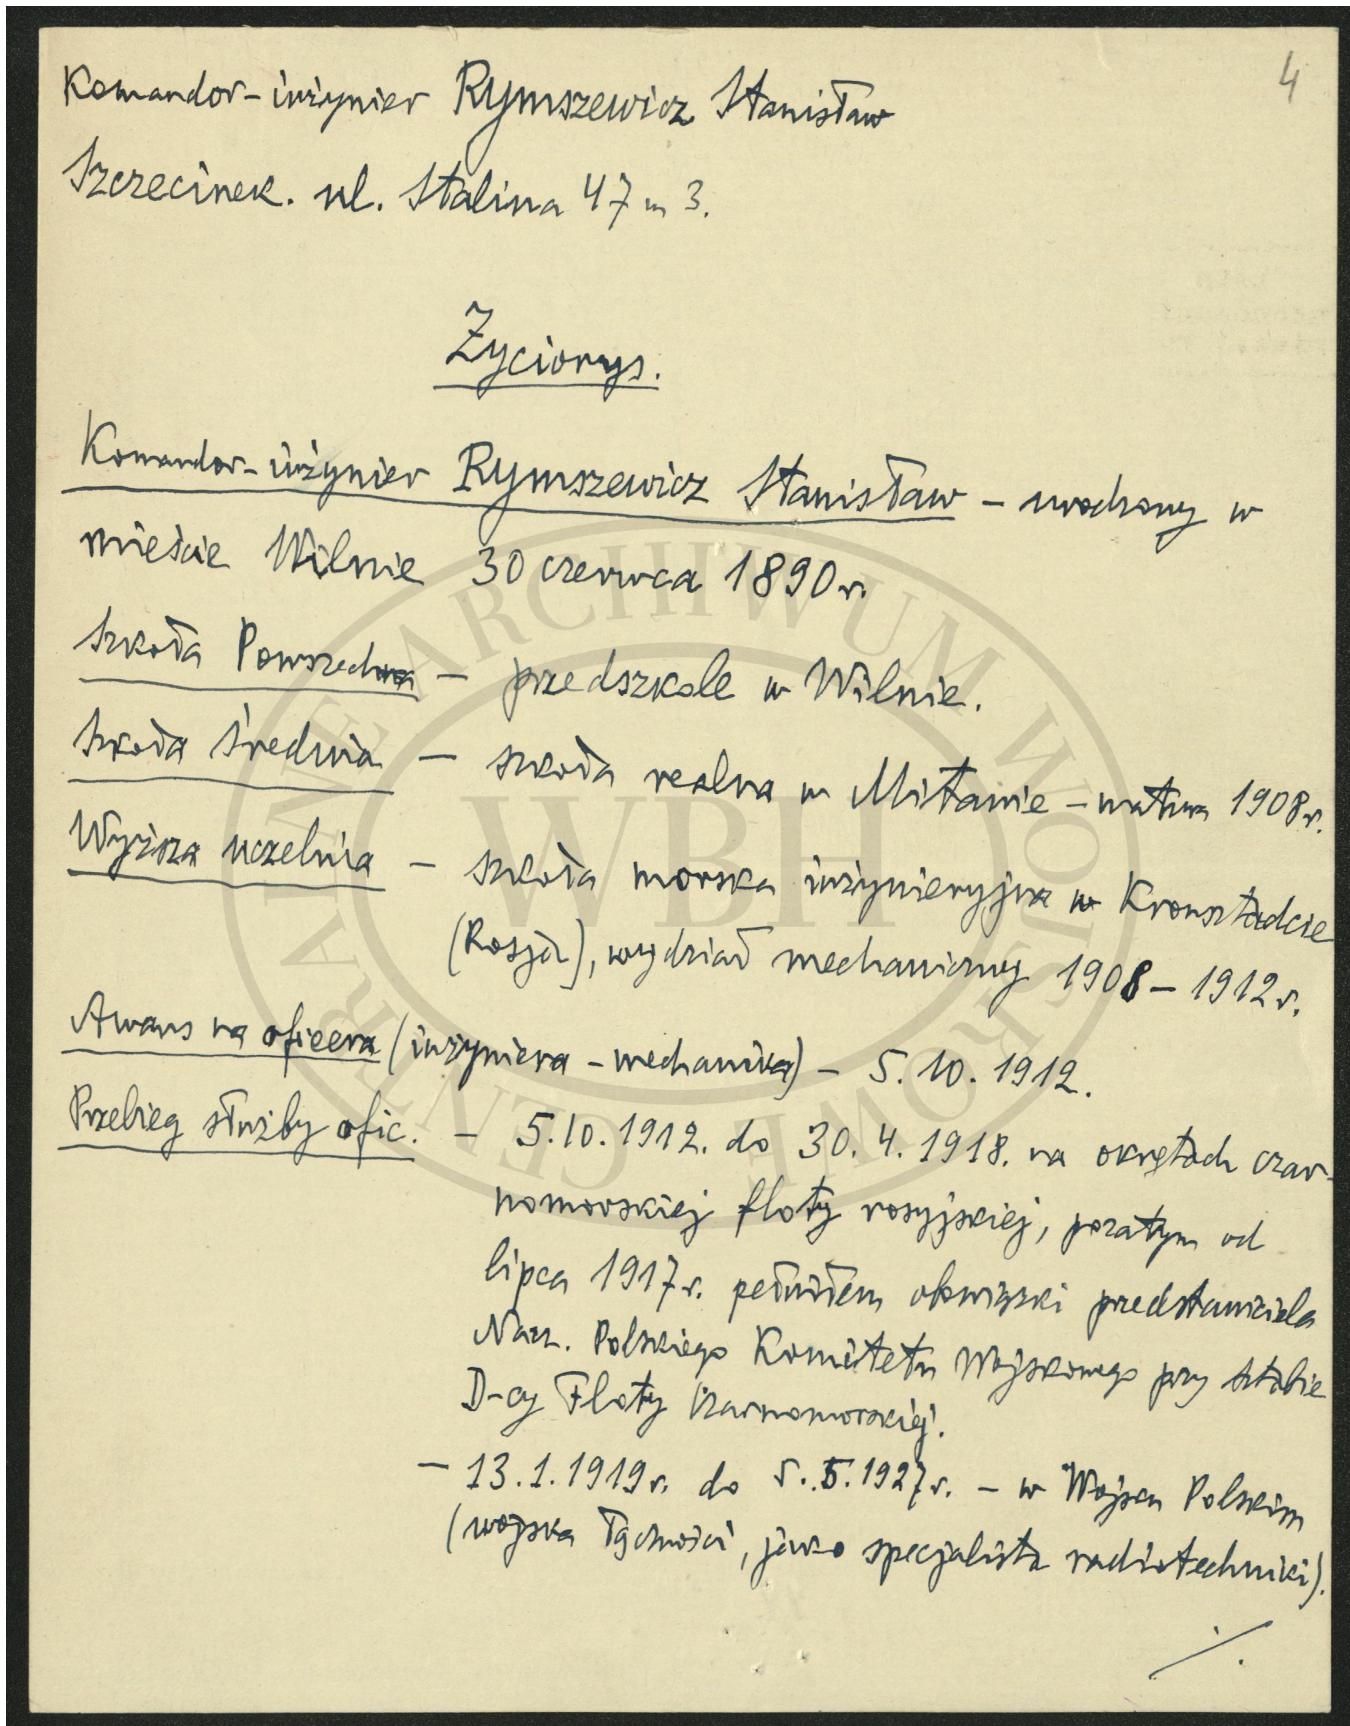 4
Komandor-inżynier Rymszewicz Stanisław
Szczecinek. ul. Stalina 47 m 3.
Życiorys.
Komandor-inżynier Rymszewicz Stanisław – urodzony w
mieście Wilnie 30 czerwca 1890 r.
Szkoła Powszechna – przedszkole w Wilnie.
Szkoła Średnia – szkoła realna w Mitawie – matura 1908 r.
Wyższa uczelnia – szkoła morska inżynieryjna w Kronsztadcie
(Rosja), wydział mechaniczny 1908 – 1912 r.
Awans na oficera (inżyniera – mechanika) – 5.10.1912.
Przebieg służby ofic. – 5.10.1912. do 30.4.1918. na okrętach czar-
nomorskiej floty rosyjskiej, pozatym od
lipca 1917 r. pełniłem obowiązki przedstawiciela
Nacz. Polskiego Komitetu Wojskowego przy sztabie
D-cy Floty Czarnomorskiej.
– 13.1.1919 r. do 5.5.1927 r. – w Wojsku Polskim
(wojska łączności, jako specjalista radiotechniki).
./.
CENTRALNE ARCHIWUM WOJSKOWE
WBH